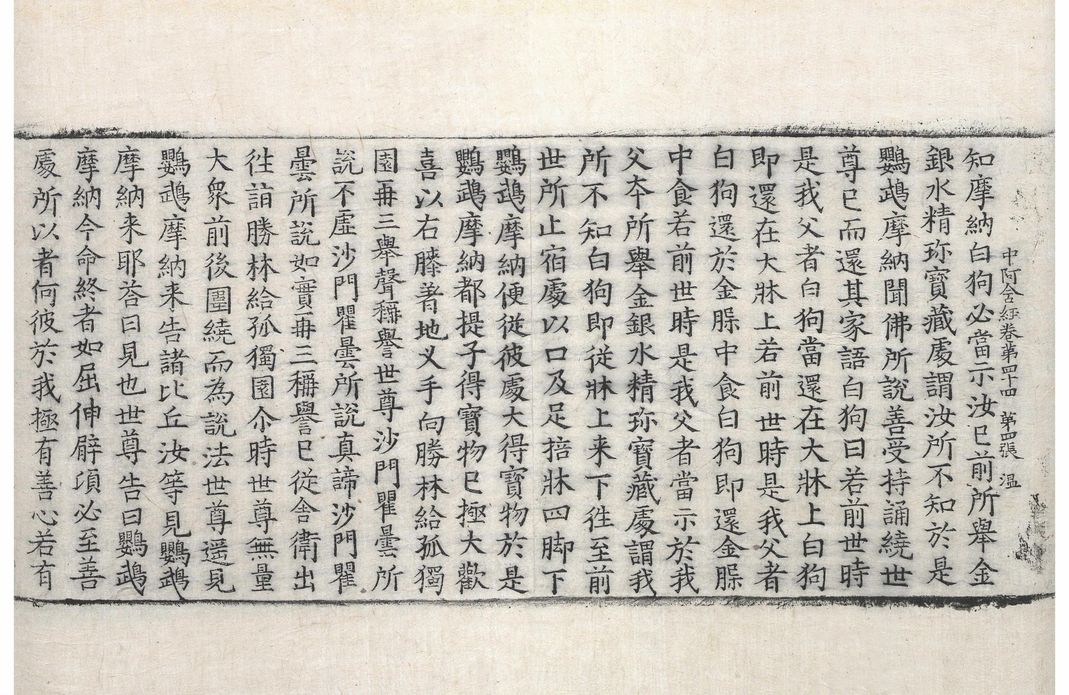 中阿含經卷第四十四 第四張 溫
知摩納白狗必當示汝已前所舉金
銀水精珎寶藏處謂汝所不知於是
鸚鵡摩納聞佛所說善受持誦繞世
尊已而還其家語白狗曰若前世時
是我父者白狗當還在大牀上白狗
即還在大牀上若前世時是我父者
白狗還於金腬中食白狗即還金腬
中食若前世時是我父者當示於我
父夲所舉金銀水精珎寶藏處謂我
所不知白狗即從牀上来下徃至前
世所止宿處以口及足掊牀四脚下
鸚鵡摩納便從彼處大得寶物於是
鸚鵡摩納都提子得寶物已極大歡
喜以右膝著地叉手向勝林給孤獨
園再三舉聲稱譽世尊沙門瞿曇所
說不虛沙門瞿曇所說真諦沙門瞿
曇所說如實再三稱譽已從舍衛出
徃詣勝林給孤獨園尒時世尊無量
大衆前後圍繞而為說法世尊遥見
鸚鵡摩納来告諸比丘汝等見鸚鵡
摩納来耶荅曰見也世尊告曰鸚鵡
摩納今命終者如屈伸臂項必至善
處所以者何彼於我極有善心若有